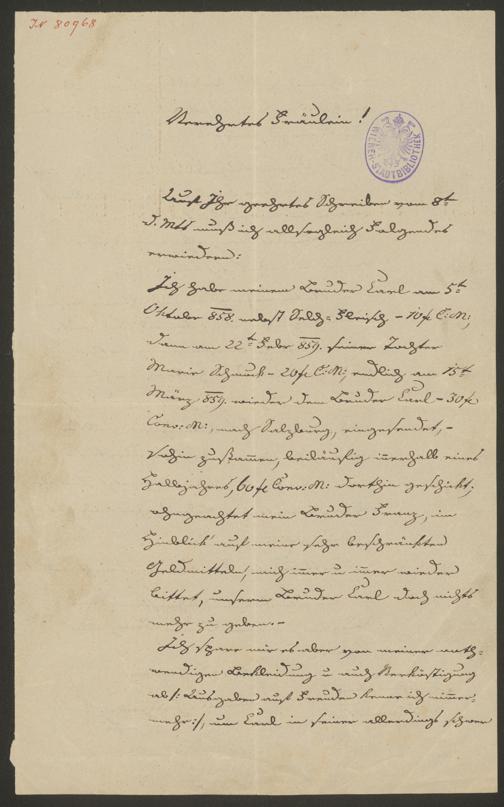 IN 80968
Verehrtes Fräulein!
WIENER STADTBIBLIOTHEK
Auf Ihr geehrtes Schreiben vom 8t
d. Mts muß ich allsogleich Folgendes
erwiedern:
Ich habe meinem Bruder Carl am 5t
Oktober 858. nebst Selch-Fleisch – 10 fl C: M:;
dann am 22t Febr 859. seiner Tochter
Marie Schmuck – 20 fl C: M:, endlich am 15t
März 859. wieder dem Bruder Carl – 30 fl
Conv: M:, nach Salzburg, eingesendet, –
sohin zusammen, beiläufig innerhalb eines
Halbjahres, 60 fl Conv: M: dorthin geschickt;
ohngeachtet mein Bruder Franz, im
Hinblick auf meine sehr beschränkten
Geldmitteln, mich immer u immer wieder
bittet, unserem Bruder Carl doch nichts
mehr zu geben. –
Ich spare mir es aber von meiner noth-
wendigen Bekleidung u auch Verköstigung
ab /: Ausgaben auf Freuden kenne ich nimmer-
mehr :/, um Carl in seiner allerdings schwer